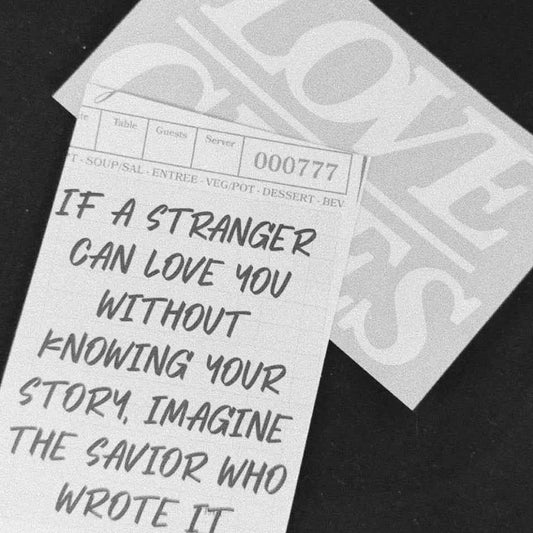 Table Guests Server 000777
T · SOUP/SAL · ENTREE · VEG/POT · DESSERT · BEV
IF A STRANGER
CAN LOVE YOU
WITHOUT
KNOWING YOUR
STORY, IMAGINE
THE SAVIOR WHO
WROTE IT
LOVE